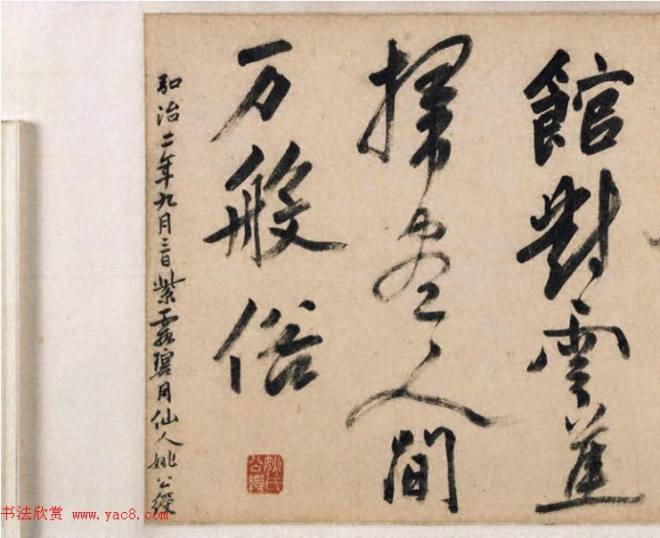 館對雲蓬
掃盡人間
万般俗
弘治二年九月三日紫霞碧月仙人姚公綬
姚氏公綬
书法欣赏 www.yac8.com